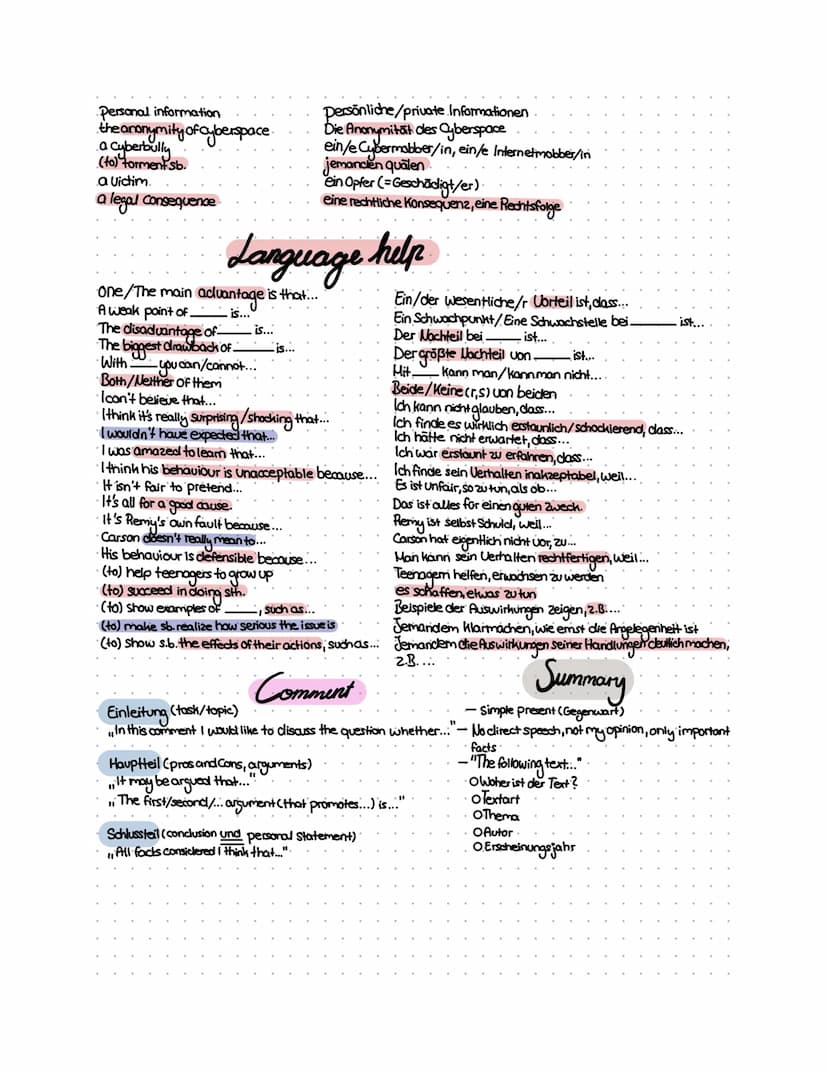 Personal information
the anonymity of cyberspace
a cyberbully
(to) torment sb.
a victim
a legal consequence
Persönliche/private Informationen
Die Anonymität des Cyberspace
ein/e Cybermobber/in, ein/e Internetmobber/in
jemanden quälen
ein Opfer (=Geschädigt/er)
eine rechtliche Konsequenz, eine Rechtsfolge
Language help
One/The main advantage is that...
A weak point of ____ is...
The disadvantage of ____ is...
The biggest drawback of ____ is...
With ____ you can/cannot...
Both/Neither of them
I can't believe that...
I think it's really surprising/shocking that...
I wouldn't have expected that...
I was amazed to learn that...
I think his behaviour is unacceptable because...
It isn't fair to pretend...
It's all for a good cause.
It's Remy's own fault because...
Carson doesn't really mean to...
His behaviour is defensible because...
(to) help teenagers to grow up
(to) succeed in doing sth.
(to) show examples of ____, such as...
(to) make sb. realize how serious the issue is
(to) show s.b. the effects of their actions, such as...
Ein/der wesentliche/r Vorteil ist, dass...
Ein Schwachpunkt/Eine Schwachstelle bei ____ ist...
Der Nachteil bei ____ ist...
Der größte Nachteil von ____ ist...
Mit ____ kann man/kann man nicht...
Beide/Keine (r,s) von beiden
Ich kann nicht glauben, dass...
Ich finde es wirklich erstaunlich/schockierend, dass...
Ich hätte nicht erwartet, dass...
Ich war erstaunt zu erfahren, dass...
Ich finde sein Verhalten inakzeptabel, weil...
Es ist unfair, so zu tun, als ob...
Das ist alles für einen guten Zweck.
Remy ist selbst Schuld, weil...
Carson hat eigentlich nicht vor, zu...
Man kann sein Verhalten rechtfertigen, weil...
Teenagern helfen, erwachsen zu werden
es schaffen, etwas zu tun
Beispiele der Auswirkungen zeigen, z.B....
Jemandem klarmachen, wie ernst die Angelegenheit ist
Jemandem die Auswirkungen seiner Handlungen deutlich machen,
z.B....
Comment
Einleitung (task/topic)
„In this comment I would like to discuss the question whether..."
Hauptteil (pros and cons, arguments)
„It may be argued that..."
„The first/second/... argument (that promotes...) is..."
Schlussteil (conclusion und personal statement)
„All facts considered I think that..."
Summary
– Simple present (Gegenwart)
– No direct speech, not my opinion, only important
facts
– "The following text..."
○ Woher ist der Text?
○ Textart
○ Thema
○ Autor
○ Erscheinungsjahr